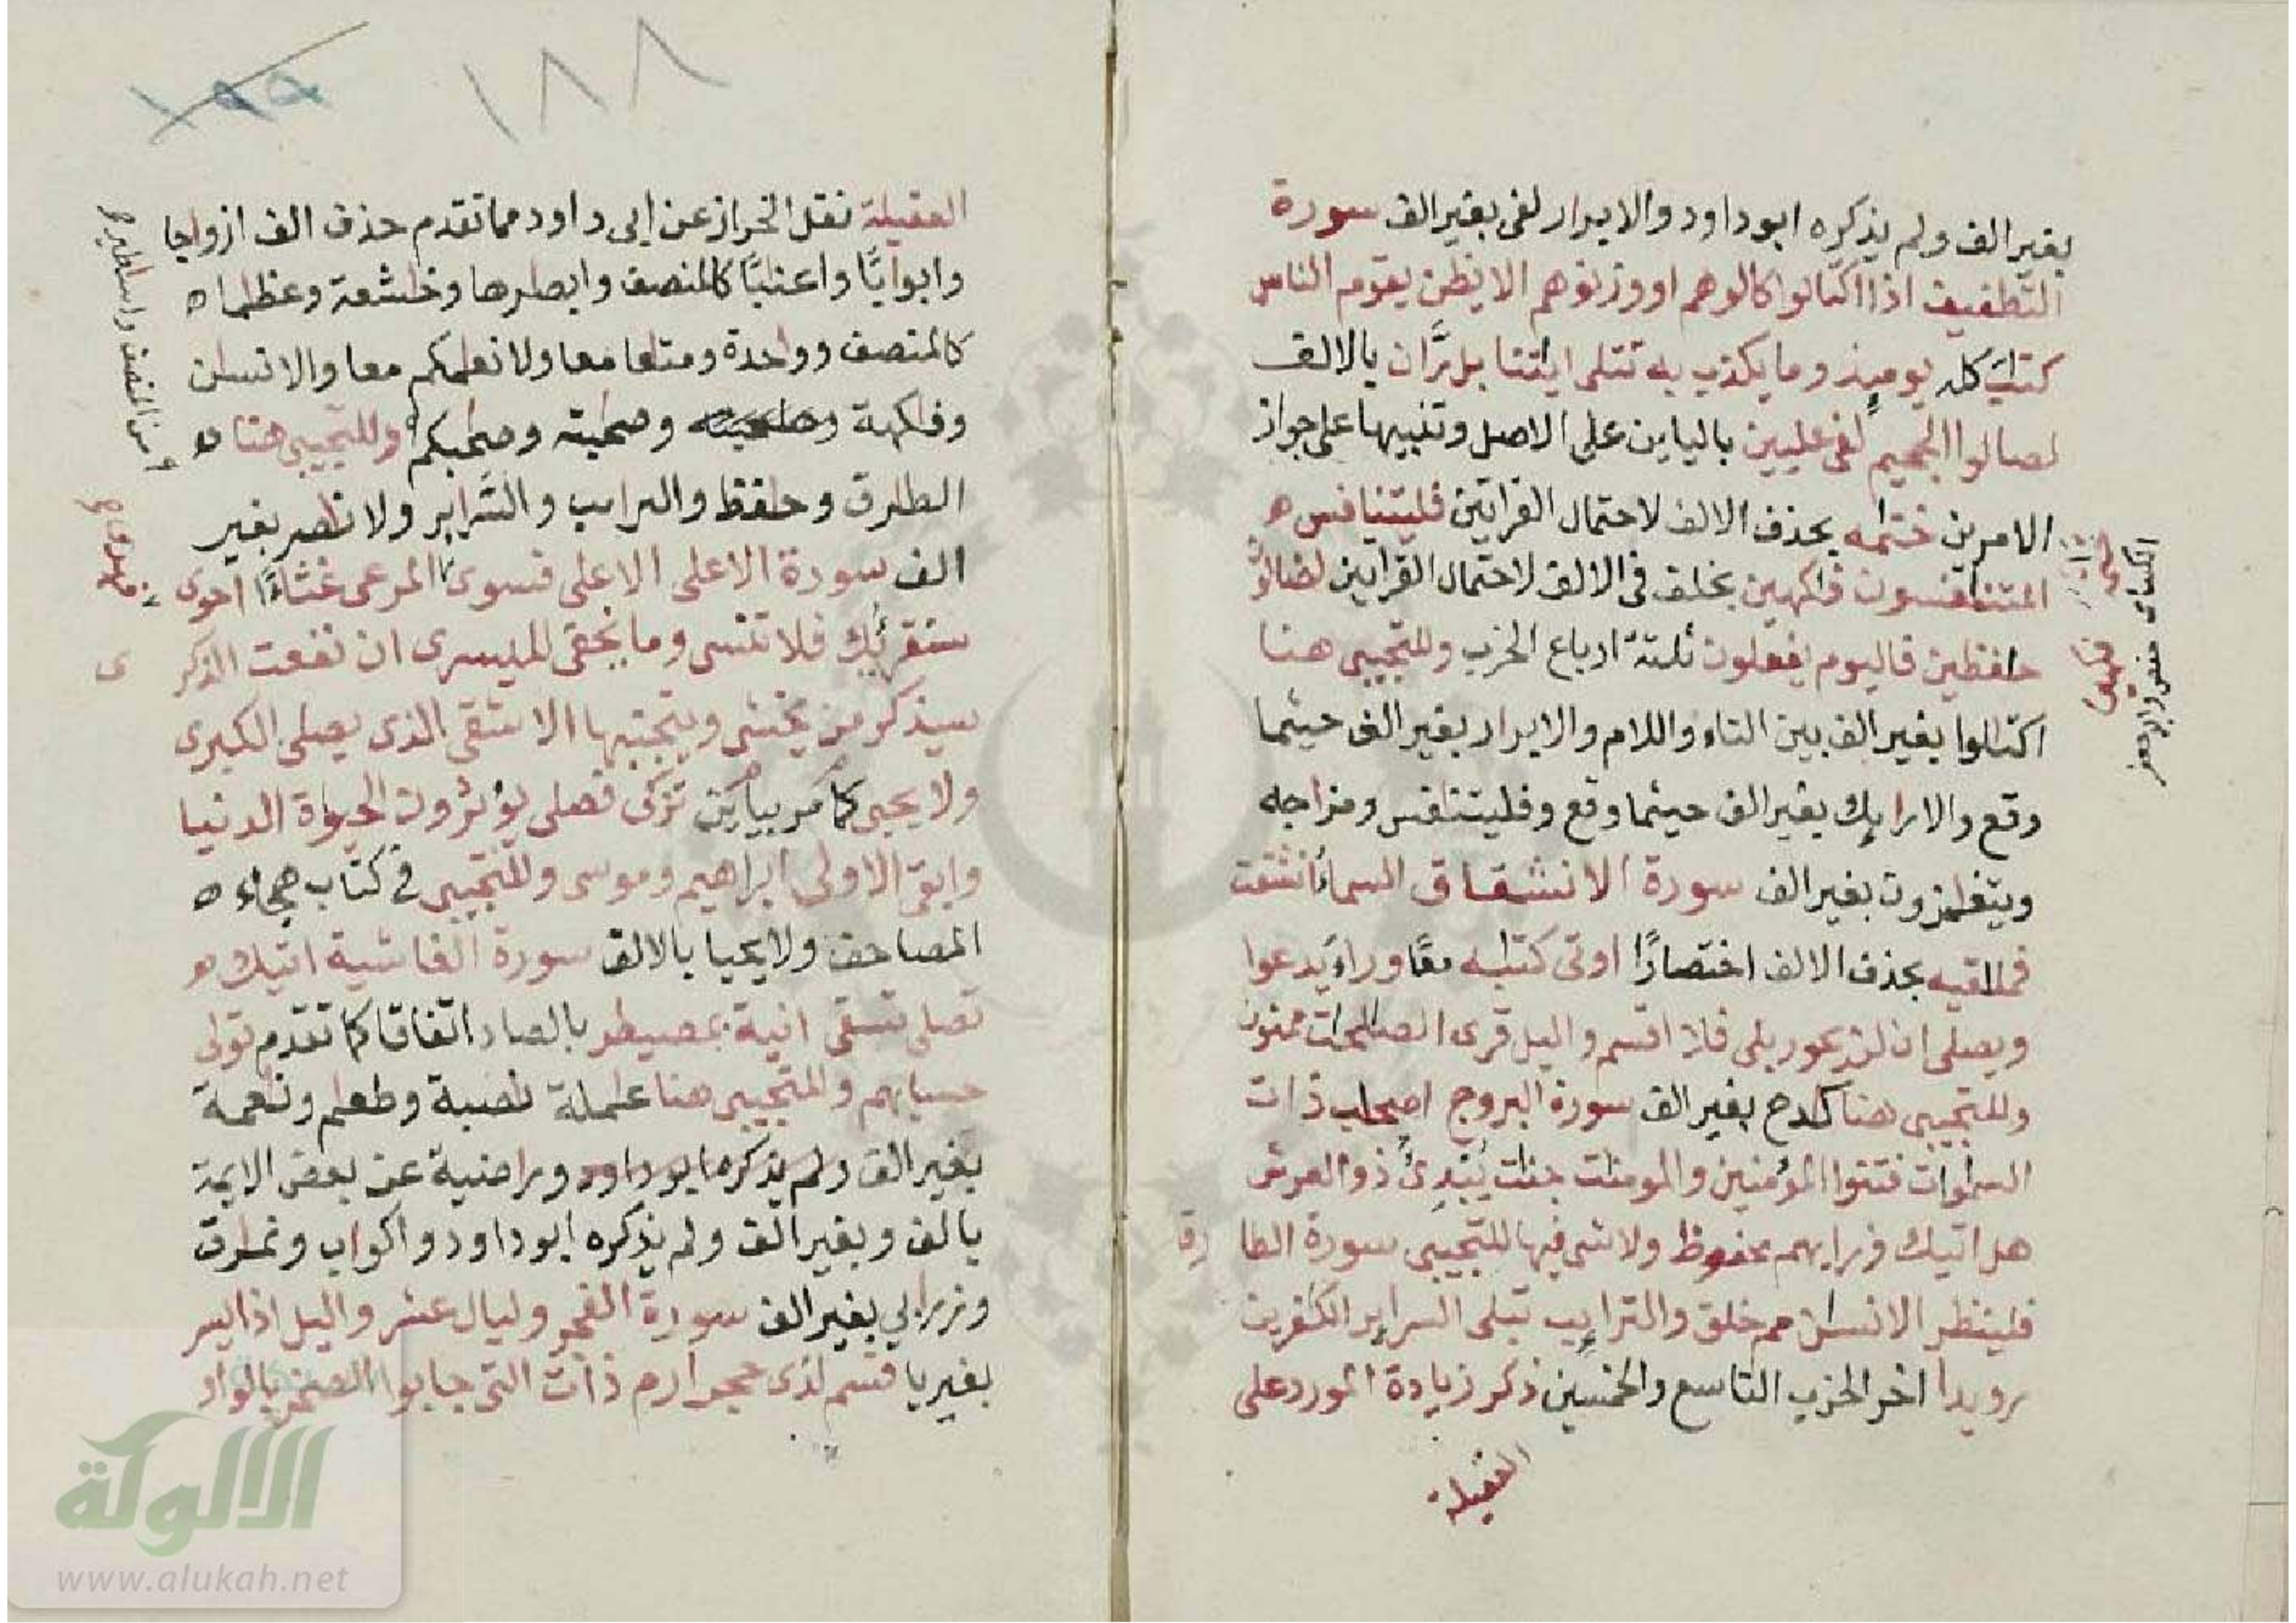 بغير الف ولم يذكره ابو داود والابرار لفى بغير الف سورة
التطفيف اذا اكتالوا كالوهم او وزنوهم الا يظن يقوم الناس
كتب كله يوميذ وما يكذب به تتلى ايتنا بل رَّان بالالف
لصالوا الجحيم لفى عليين بالياين على الاصل وتنبيها على جواز
الامرين ختمه بحذف الالف لاحتمال القراتين فليتنافس ه
المتنافسون فاكهين بخلف فى الالف لاحتمال القراتين لضالون
حفظين فاليوم يفعلون ثلثة ارباع الحزب وللتجيبى هنا
اكتالوا بغير الف بين التاء واللام والابرار بغير الف حيثما
وقع والارايك بغير الف حيثما وقع وفليتنافس ومزاجه
ويتغمزون بغير الف سورة الانشقاق السماء انشقت
فملاقيه بحذف الالف اختصارًا اوتى كتبه معًا وراء يدعوا
ويصلى ان لن يحور بلى فلا اقسم واليل قرى الصالحات ممنون
وللتجيبى هنا كادح بغير الف سورة البروج اصحاب ذات
السموات فتنوا المؤمنين والمومنت جنت يُبْدِئُ ذو العرش
هل اتيك ورايهم محفوظ ولا شى فيها للتجيبى سورة الطارق
فلينظر الانسن مم خلق والترايب تبلى السراير الكفرين
رويدا اخر الحزب التاسع والخمسين ذكر زيادة المورد على
العقيلة
الكسائى حفص وابو جعفر
العقيلة نقل الخراز عن ابى داود مما تقدم حذف الف ازواجا
وابوابًا واعنبًا كالمنصف وابصرها وخشعة وعظما ه
كالمنصف وواحدة ومتعا معا ولانعمكم معا والانسن
وفكهة وصحبته وصحبكم وللتجيبى هنا ه
الطارق وحفظ والترايب والسَّراير ولا ناصر بغير
الف سورة الاعلى الاعلى فسوى المرعى غثاءً احوى
سنقرئك فلا تنسى وما يخفى لليسرى ان نفعت الذكر
ى
سيذكر من يخشى ويتجنبها الاشقى الذى يصلى الكبرى
ولا يحيى كما مر بياين تزكى فصلى يؤثرون الحيوة الدنيا
وابقى الاولى ابراهيم وموسى وللتجيبى فى كتاب هجاء ه
المصاحف ولا يحيا بالالف سورة الغاشية اتيك ه
تصلى تسقى انية بمصيطر بالصاد اتفاقا كما تقدم تولى
حسابهم وللتجيبى هنا عملة نصبة وطعام ونعمة
بغير الف ولم يذكرها ابو داود وراضية عن بعض الايمة
بالف وبغير الف ولم يذكره ابو داود واكواب ونمارق
وزرابي بغير الف سورة الفجر وليال عشر واليل اذا يسر
بغير يا قسم لذى حجر ارم ذات التى جابوا الصخر بالواو
من المنصف واساطير
١٨٨
الالوكة
www.alukah.net